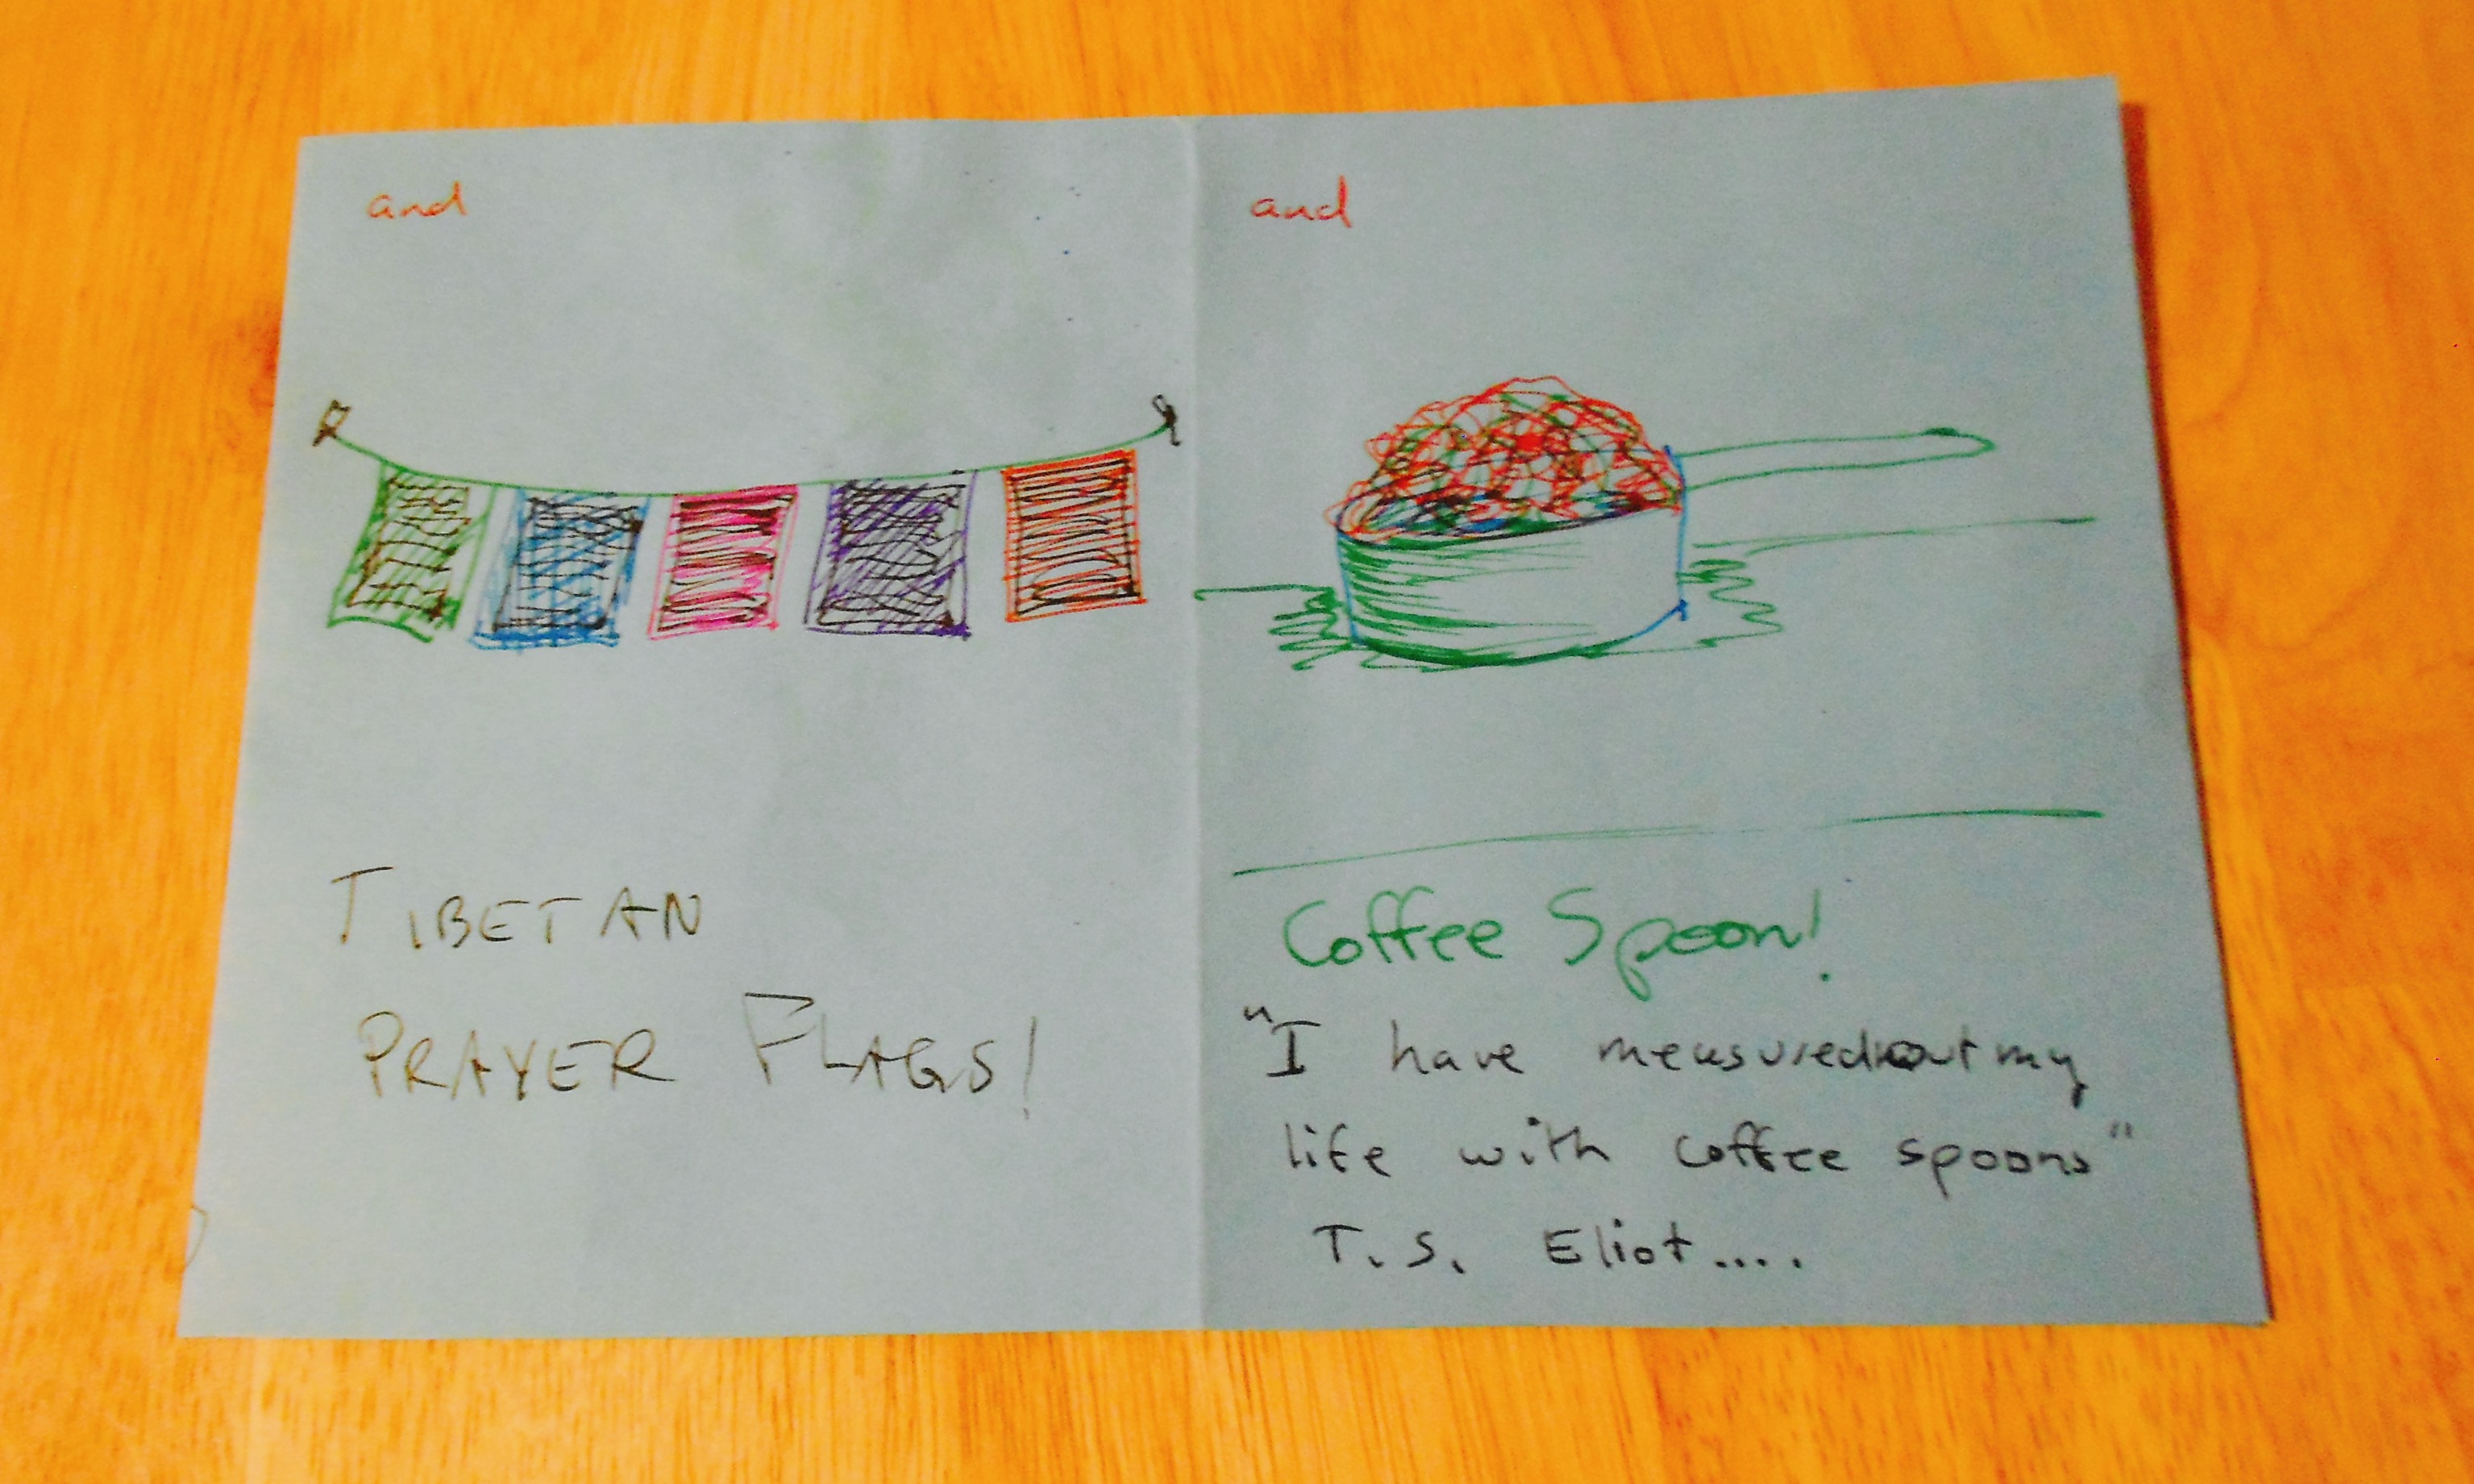 and
TIBETAN
PRAYER FLAGS!
and
Coffee Spoon!
"I have measured out my
life with coffee spoons"
T.S. Eliot....